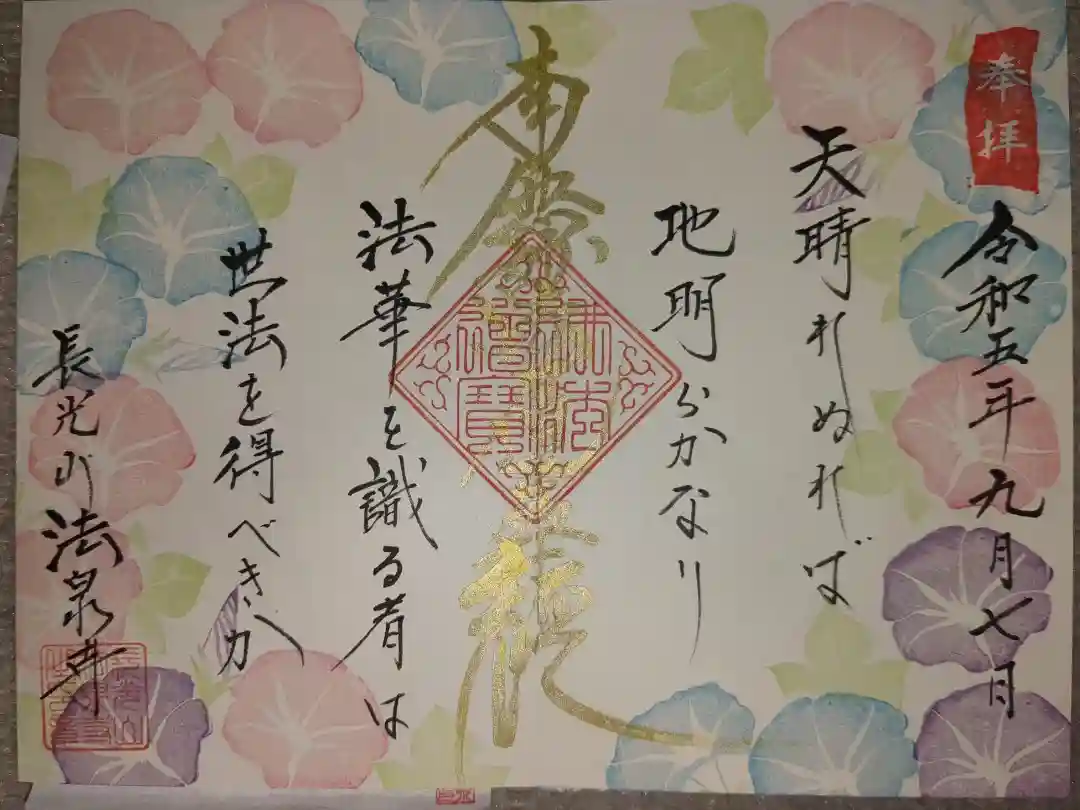 奉拝
令和五年九月七日
天晴れぬれば
地明らかなり
南無妙法蓮華経
佛法僧寳
法華を識る者は
世法を得べきか
長光山法泉寺